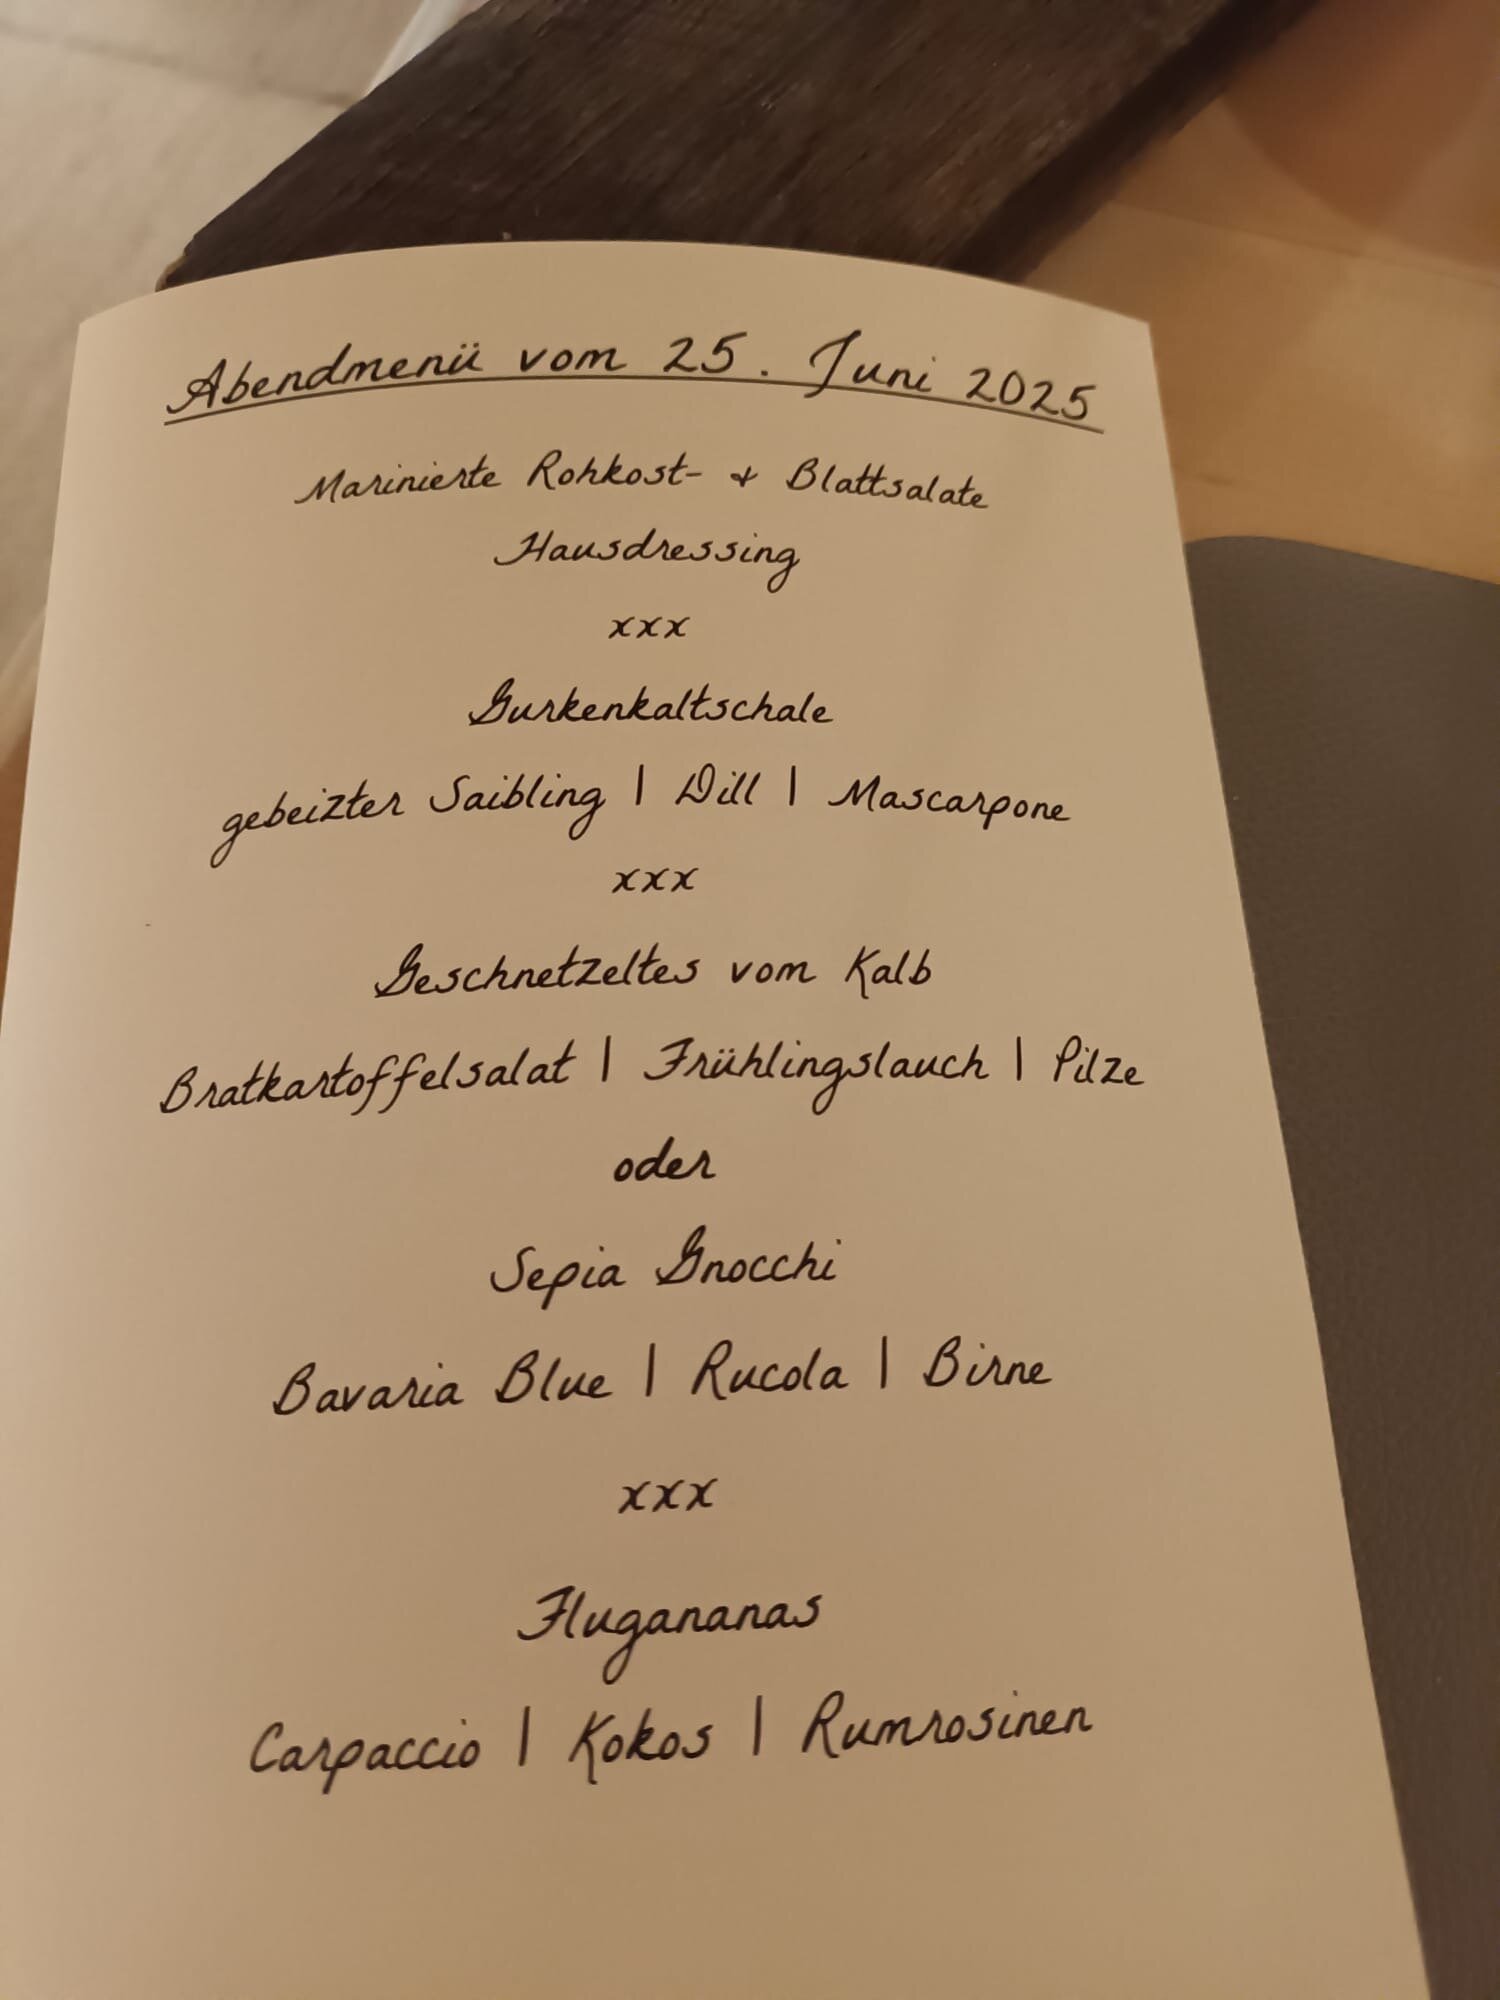 Abendmenü vom 25. Juni 2025
Marinierte Rohkost- & Blattsalate
Hausdressing
xxx
Gurkenkaltschale
gebeizter Saibling | Dill | Mascarpone
xxx
Geschnetzeltes vom Kalb
Bratkartoffelsalat | Frühlingslauch | Pilze
oder
Sepia Gnocchi
Bavaria Blue | Rucola | Birne
xxx
Flugananas
Carpaccio | Kokos | Rumrosinen